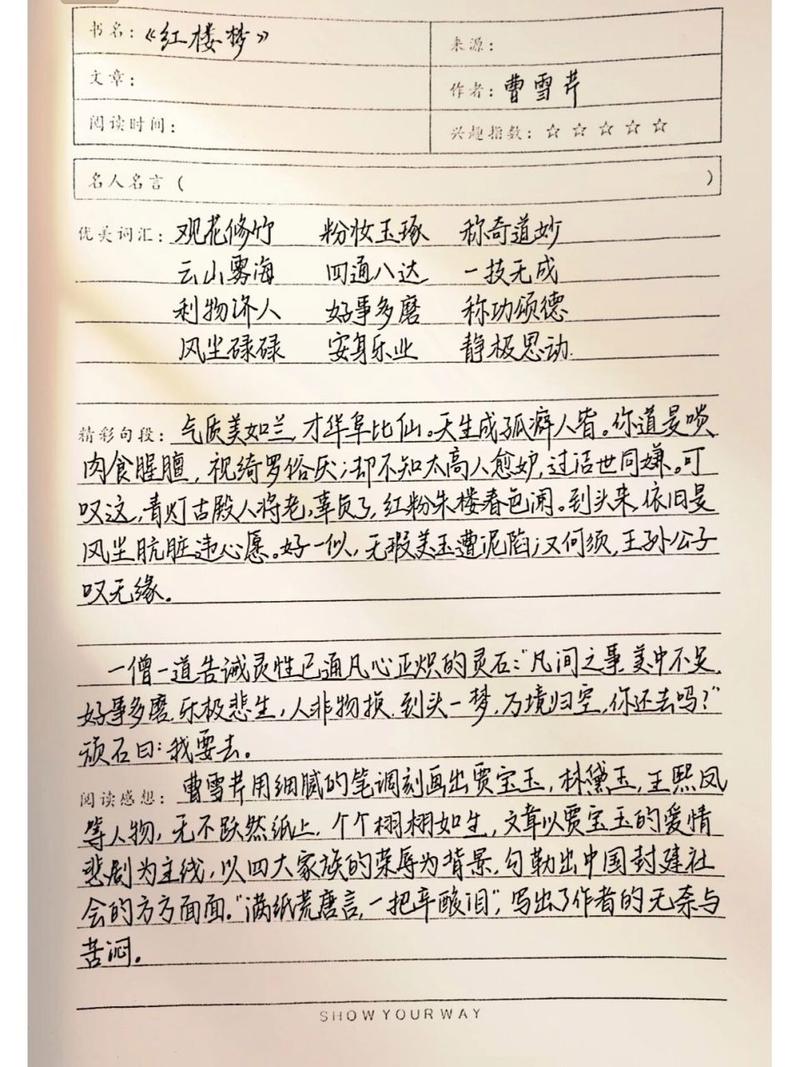 书名：《红楼梦》 来源：
文章： 作者：曹雪芹
阅读时间： 兴趣指数：☆☆☆☆☆
名人名言（ ）
优美词汇：观花修竹 粉妆玉琢 称奇道妙
云山雾海 四通八达 一技无成
利物济人 好事多磨 称功颂德
风尘碌碌 安身乐业 静极思动
精彩句段：气质美如兰，才华阜比仙。天生成孤癖人皆。你道是啖
肉食腥膻，视绮罗俗厌；却不知太高人愈妒，过洁世同嫌。可
叹这，青灯古殿人将老，辜负了，红粉朱楼春色阑。到头来，依旧是
风尘肮脏违心愿。好一似，无瑕美玉遭泥陷；又何须，王孙公子
叹无缘。
一僧一道告诫灵性已通凡心正炽的灵石："凡间之事，美中不足，
好事多磨，乐极悲生，人非物换，到头一梦，万境归空，你还去吗？"
顽石曰：我要去。
阅读感想：曹雪芹用细腻的笔调刻画出贾宝玉，林黛玉，王熙凤
等人物，无不跃然纸上，个个栩栩如生，文章以贾宝玉的爱情
悲剧为主线，以四大家族的荣辱为背景，勾勒出中国封建社
会的方方面面。"满纸荒唐言，一把辛酸泪"，写出了作者的无奈与
苦闷。
SHOW YOUR WAY